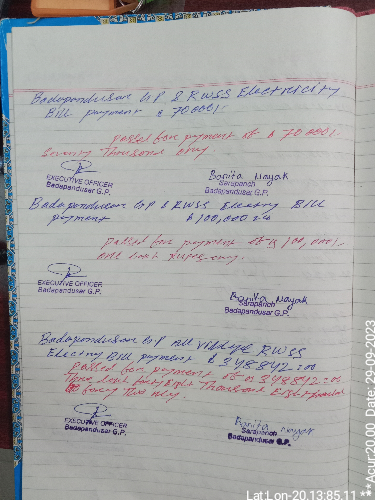 Badapandusar GP & RWSS Electricity
Bill payment & 70000/-
passed for payment of Rs 70000/-
Seventy Thousand only
EXECUTIVE OFFICER
Badapandusar G.P.
Banita Nayak
Sarapanch
Badapandusar G.P.
Badapandusar GP & RWSS Electricity Bill
payment & 100,000=00
passed for payment of Rs 100,000/-
one lakh Rupees only.
EXECUTIVE OFFICER
Badapandusar G.P.
Banita Nayak
Sarapanch
Badapandusar G.P.
Badapandusar GP All Village RWSS
Electricity Bill payment & 348842=00
passed for payment of Rs 348842=00
Three lakh forty eight Thousand Eight hundred
forty Two only.
EXECUTIVE OFFICER
Badapandusar G.P.
Banita Nayak
Sarapanch
Badapandusar G.P.
Lat:Lon-20.13:85.11 **Acur:20.00 Date:29-09-2023